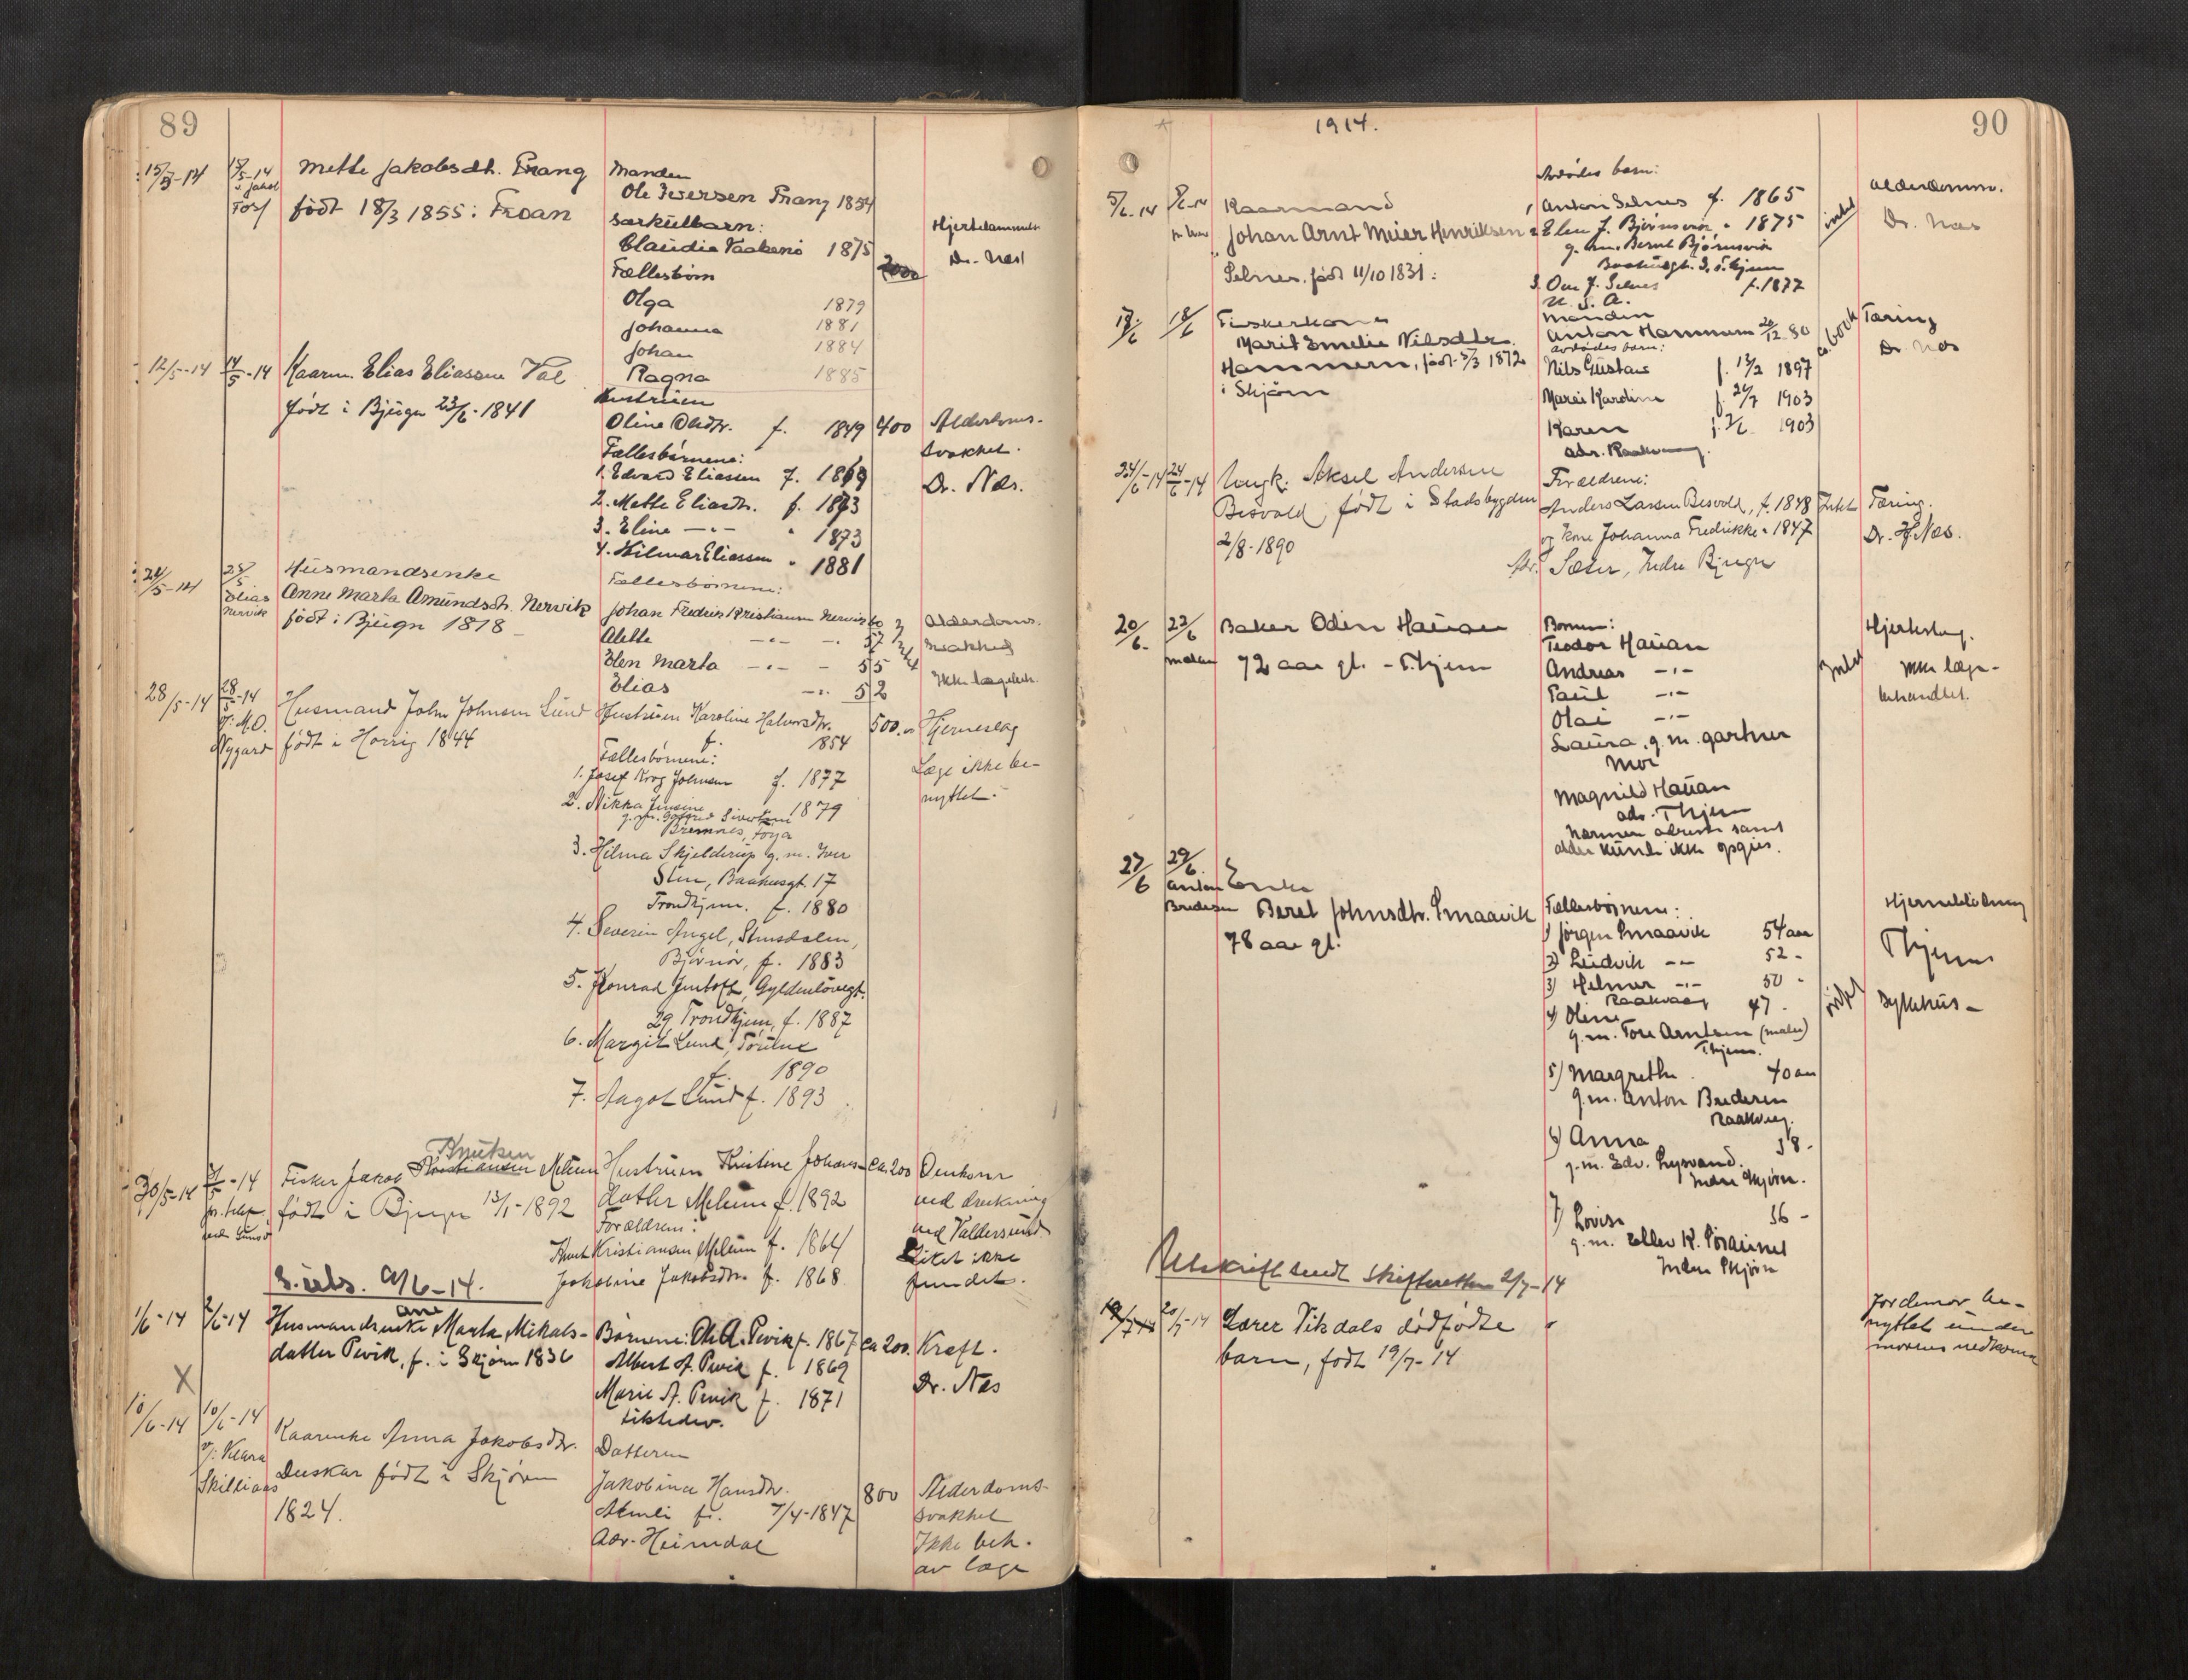 89
15/5-14
15/5-14
Mette Jakobsdt. Frang
født 18/3 1855 i Froan
Manden
Ole Iversen Frang 1854
Særkulbarn:
Claudia 1875
Fællesbørn
Olga 1879
Johanna 1881
Johan 1884
Ragna 1885
2000
Dr. Næs
12/5-14
14/5-14
Kaarm. Elias Eliassen Val
født i Bjugn 23/6-1841
Hustruen
Oline Olsdtr. f. 1849
Fællesbørnene:
1. Edvard Eliassen f. 1869
2. Mette Eliasdtr. f. 1873
3. Eline -"- " 1873
4. Hilmar Eliassen " 1881
400
Alderdoms-
svakhet.
Dr. Næs.
24/5-14
28/5
Elias
Nervik
Husmandsenke
Anne Marta Amundsdt. Nervik
født i Bjugn 1818
Fællesbørnene:
Johan Fredrik Kristiansen Nervik 60
Alette -"- -"- 57
Elen Marta -"- - 55
Elias -"- 52
Alderdoms-
svakhet
Ikke lægebeh.
28/5-14
28/5-14
v. M.O.
Nygard
Husmand John Johnsen Lund
født i Horrig 1844
Hustruen Karoline Halvorsdtr.
f. 1854
Fællesbørnene:
1. Josef Krog Johnsen f. 1877
2. Nikka Jensine 1879
g.m. Gotfred Sivertsen
Bremnes, Foya
3. Hilma Skjelderup g.m. Iver
Sten, Baahusgt. 17
Trondhjem. f. 1880
4. Severin Angel, Stensdalen,
Bjørnør, f. 1883
5. Konrad Jentoft, Gyldenløvegt.
29 Trondhjem, f. 1887
6. Margit Lund,
f. 1890
7. Aagot Lund f. 1893
500.00
Hjerneslag
Læge ikke be-
nyttet.
30/5-14
31/5-14
pr. telef.
Fisker Jakob Kristiansen Melum
Knutsen
født i Bjugn 13/1-1892
Hustruen Kristine Johans-
datter Melum f. 1892
Forældrene:
Knut Kristiansen Melum f. 1864
Jakobine Jakobsdtr. f. 1868
ca. 200
Omkom
ved drukning
ved Valdersund.
Liket ikke
fundet.
S. uts. 9/6-14.
1/6-14
2/6-14
Husmandsenke Ane Marta Mikals-
datter Pevik, f. i Skjørn 1836
Børnene: Ole A. Pevik f. 1867
Albert A. Pevik f. 1869
Marie A. Pevik f. 1871
ca 200.
Kræft.
Dr. Næs
X
10/6-14
10/6-14
v/: Klara
Skilliaas
Kaarenke Anna Jakobsdtr.
Duskar født i Skjørn
1824.
Datteren
Jakobina Hansdtr.
Almli f. 7/4-1847
Adr. Heimdal
800
Alderdoms-
svakhet
Ikke beh.
av læge
90
1914.
5/6-14
8/6-14
Kaarmand
Johan Arnt Meier Henriksen
Selnes, født 11/10 1831.
Avdødes barn:
1, Anton Selnes f. 1865
2 Elen J. Bjørnsviør " 1875
g.m. Bernt Bjørnsviør
3. Ove J. Selnes f. 1877
U.S.A.
intet
Alderdomm.
Dr. Næs
17/6
18/6
Fiskerkone
Marit Emelie Nilsdtr.
Hammern, født 5/3 1872
i Skjørn
Manden
Anton Hammern 20/12 80
avdødes barn:
Nils Gustav f. 13/2 1897
Marei Kardine f. 24/7 1903
Karen 1903
adr. Raakvaag.
Tæring
Dr. Næs
24/6-14
24/6-14
Ungk. Aksel Andersen
Besvold, født i Stadsbygden
2/8-1890
Forældrene:
Anders Larsen Besvold, f. 1848
og kone Johanna Fredrikke " 1847
Adr. Sæter, Indre Bjugn
Intet
Tæring.
Dr. H. Næs.
20/6-
23/6
Baker Odin Hauan
72 aar gl. - Thjem
Børnene:
Teodor Hauan
Andreas -"-
Paul -"-
Olai -"-
Laura, g.m. gartner
Moe
Magnild Hauan
adr. Thjem
Nærmere adresse samt
alder kunde ikke opgies.
Intet
Hjerteslag.
Ikke læge-
behandlet.
27/6
29/6.
Anton
Bredesen
Enke
Beret Johnsdtr. Smaavik
78 aar gl.
Fællesbørnene:
1) Jørgen Smaavik 54 aar
2) Ludvik -"- 52 -
3) Helmer -"- 50 -
Raakvaag
4) Oline 47 -
g.m. Tore Arntsen (maler)
Thjem.
5) Margrethe 40 aar
g.m. Anton Bredesen
Raakvaag.
6) Anna 38 -
g.m. Edv. Lysvand.
Indre Skjørn.
7) Lovise 36 -
Indre Skjørn
intet
Hjerneblødning
Thjems
Sykehus -
Utskrift sendt Skifteretten 2/7-14
19/7-14
20/7-14
Lærer Vikdals dødfødte
barn, født 19/7-14
Jordemor be-
nyttet under
morens nedkomst